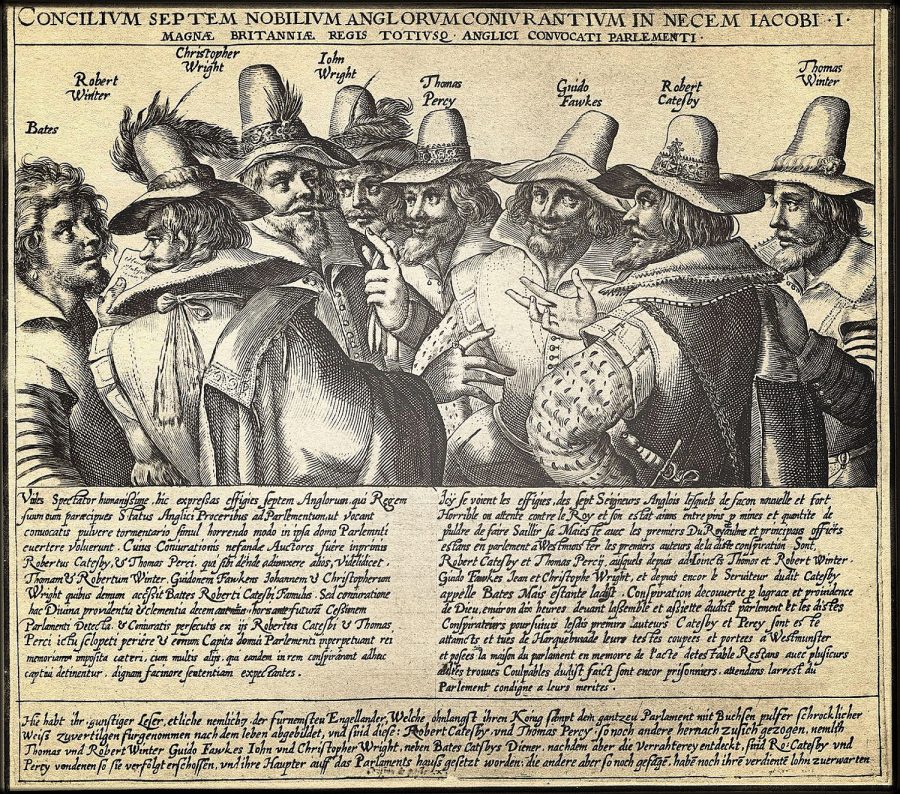 CONCILIVM SEPTEM NOBILIVM ANGLORVM CONIVRANTIVM IN NECEM IACOBI · I ·
MAGNÆ BRITANNIÆ REGIS TOTIVSQ · ANGLICI CONVOCATI PARLEMENTI ·
Bates
Robert
Winter
Christopher
Wright
Iohn
Wright
Thomas
Percy
Guido
Fawkes
Robert
Catesby
Thomas
Winter
Vides Spectator humanissime, hic expressas effigies septem Anglorum, qui Regem
suum cum præcipuis Status Anglici Proceribus ad Parlementum, ut vocant
convocatis pulvere tormentario simul horrendo modo in ipsa domo Parlemnti
evertere voluerunt. Cuius Coniurationis nefandæ Auctores fuere inprimis
Robertus Catesby, & Thomas Perci, qui sibi deinde adiunxere alios, Videlicet.
Thomam & Robertum Winter, Guidonem Fawkens Iohannem & Christopherum
Wright quibus demum accessit Battes Roberti Catesbi Famulus. Sed coniuratione
hac Divina providentia & clementia decem horis ante futuram Cessionem
Parlamenti Detecta. & Coniuratis persecutis ex iis Robertus Catesbi & Thomas
Perci ictu sclopeti periere & eorum Capita domui Parlementi inperpetuam rei
memoriam imposita cæteri, cum multis alijs, qui eandem in rem conspirarant adhuc
captivi detinentur, dignam facinore sententiam expectantes.
Icy se voient les effigies, des sept Seigneurs Anglois lesquels de facon nouvelle et fort
Horrible on attente contre le Roy et son estat aians entre pris p mines et quantite de
puldre de faire Saillir sa Maieste avec les premiers Du Royaulme et principaus officiers
estans en parlement a Westmunster les premiers auteurs de la diste conspiration Sont,
Robert Catesby et Thomas Percij, ausquels depuis adioincts Thomos et Robert Winter.
Guido Fawkes Jean et Christophe Wright, et depuis encor le Seruiteur dudit Catesby
appelle Bates Mais estante ladist Conspiration decouverte p la grace et providence
de Dieu, environ dix heures devant lassemble et assiette dudist parlement et les distes
Conspirateurs poursuivis lesdis premiers auteurs Catesby et Percy sont este
attaincts et tues de Harquebusade leurs testes coupees et portees a Westmunster
et posees la maison du parlament en memorre de l'acte detestable Restans avec plusieurs
aultres trouves Coulpables dudist faict sont encor prisonniers, attendans larrest du
Parlement condigne a leurs merites.
Hie habt ihr, gunstiger Leser, etliche nemlich 7. der furnemsten Engellander, Welche ohnlangst ihren Konig sampt dem gantzen Parlament mit Buchsen pulfer schrocklicher
Weiß zuvertilgen furgenommen nach dem leben abgebildet, und sind diese: Robert Catesby, und Thomas Percy; so noch andere hernach zusich gezogen, nemlich
Thomas vnd Robert Winter Guido Fawkes Iohn vnd Christopher Wright, neben Bates Catsbys Diener, nachdem aber die Verrahterey entdeckt, sind Ro: Catesby vnd
Percy von denen so sie verfolgt erschossen, vnd ihre Haupter auff das Parlaments hauss gesetzt worden; die andere aber so noch gefangē, habēn noch ihrē verdientē lohn zuerwarten